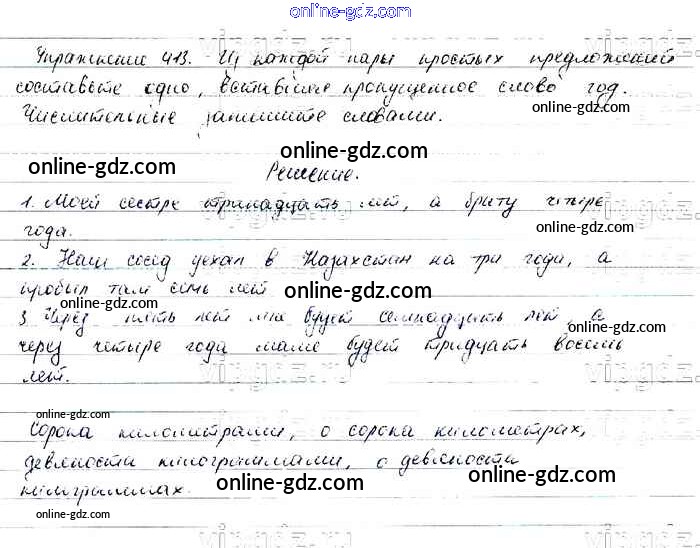 online-gdz.com
Упражнение 413. Из каждой пары простых предложений
составьте одно, вставляя пропущенное слово год.
online-gdz.com
Числительные запишите словами.
online-gdz.com
online-gdz.com
Решение.
online-gdz.com
1. Моей сестре тринадцать лет, а брату четыре
года.
online-gdz.com
2. Наш сосед уехал в Казахстан на три года, а
пробыл там лет
online-gdz.com
3. Через пять лет мне будет семнадцать лет, а
online-gdz.com
через четыре года маме будет тридцать восемь
лет.
online-gdz.com
online-gdz.com
Сорока километрами, о сорока километрах,
девяноста килограммами, о девяноста
online-gdz.com
online-gdz.com
килограммах.
online-gdz.com
online-gdz.com
vipgdz.ru